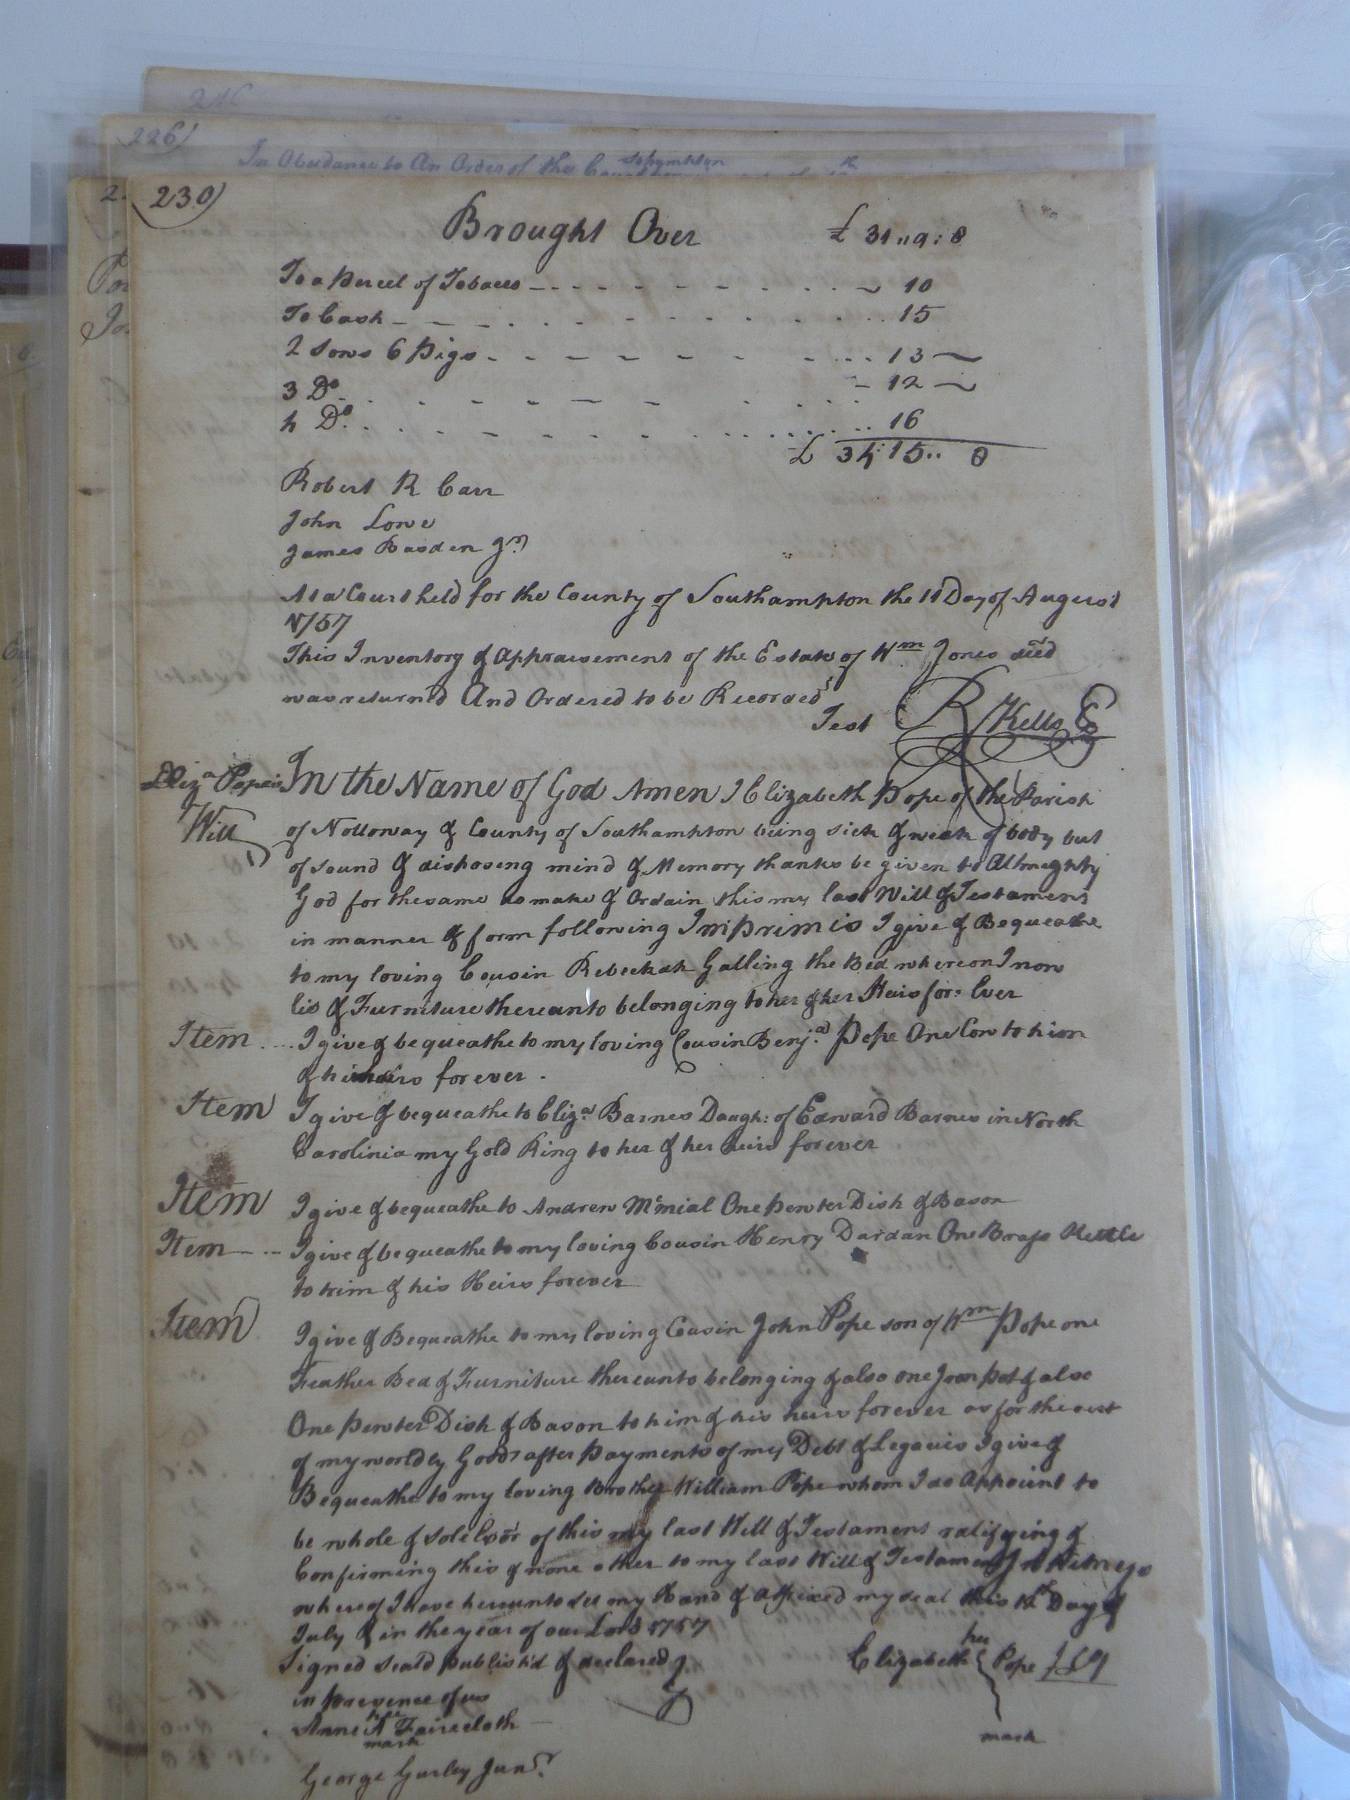 216
226)
In Obedance to An Order of the Court Sohampton
230)
Brought Over £ 31 ,, 9 : 8
To a Parcel of Tobacco 10
To Cash 15
2 Sows 6 Pigs 13
3 Do. 12
4 Do. 16
£ 34 : 15 .. 8
Robert R Carr
John Lowe
James Basden Jr.
At a Court held for the County of Southampton the 11 Day of August
1757
This Inventory & Appraisement of the Estate of Wm. Jones decd
was returned And Ordered to be Recorded
Test R Kello
Eliza Pope's In the Name of God Amen I Elizabeth Pope of the Parish
Will of Nottoway & County of Southampton being sick & weak of body but
of sound & disposing mind & Memory thanks be given to Allmighty
God for the same do make & Ordain this my last Will & Testament
in manner & form following Imprimis I give & Bequeathe
to my loving Cousin Rebeckah Galling the Bed whereon I now
lie & Furniture thereunto belonging to her & her Heirs for: Ever
Item I give & bequeathe to my loving Cousin Benja. Pope One Cow to him
& his heirs forever.
Item I give & bequeathe to Eliza. Barnes Daugh: of Edward Barnes in North
Carolinia my Gold Ring to her & her heirs forever
Item I give & bequeathe to Andrew Mcmial One Pewter Dish & Bason
Item I give & bequeathe to my loving Cousin Henry Dardan One Brass Kettle
to him & his Heirs forever
Item I give & Bequeathe to my loving Cousin John Pope son of Wm Pope one
Feather Bed & Furniture thereunto belonging & also one Iron pot & also
One Pewter Dish & Bason to him & his heirs forever as for the rest
of my worldly Goods after Payments of my Debt & Legacies I give &
Bequeathe to my loving Brother William Pope whom I do Appoint to
be whole & sole Exor of this my last Will & Testament ratifying &
Confirming this & none other to my last Will & Testament In Witness
whereof I have hereunto set my Hand & affixed my seal this Day of
July & in the year of our Lord 1757
Signed seal'd publish'd & declared Elizabeth her Pope
in presence of us
Anne her Faircloth mark
mark
George Gurley Junr.